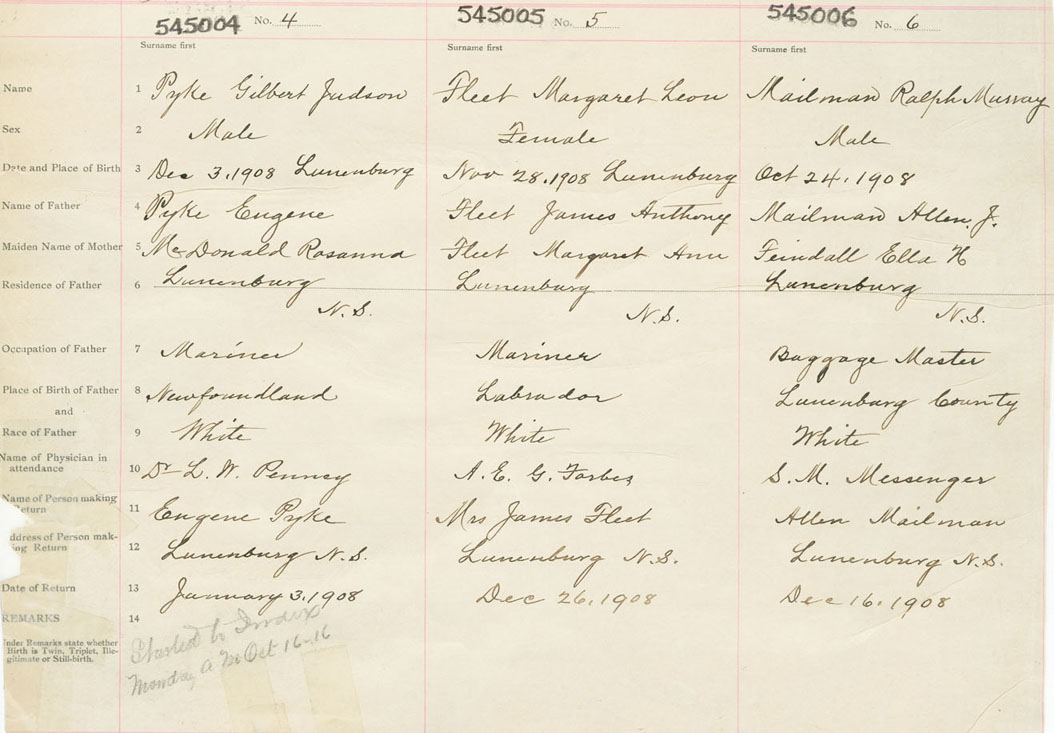 545004 No. 4 545005 No. 5 545006 No. 6
Surname first Surname first Surname first
Name 1 Pyke Gilbert Judson Fleet Margaret Leou Mailman Ralph Murray
Sex 2 Male Female Male
Date and Place of Birth 3 Dec 3, 1908 Lunenburg Nov 28, 1908 Lunenburg Oct 24, 1908
Name of Father 4 Pyke Eugene Fleet James Anthony Mailman Allen J.
Maiden Name of Mother 5 McDonald Rosanna Fleet Margaret Ann Feindall Ella H
Residence of Father 6 Lunenburg Lunenburg Lunenburg
N.S. N.S. N.S.
Occupation of Father 7 Mariner Mariner Baggage Master
Place of Birth of Father 8 Newfoundland Labrador Lunenburg County
and
Race of Father 9 White White White
Name of Physician in
attendance 10 Dr L. W. Penney A. E. G. Forbes S. M. Messenger
Name of Person making
Return 11 Eugene Pyke Mrs James Fleet Allen Mailman
Address of Person mak-
ing Return 12 Lunenburg N.S. Lunenburg N.S. Lunenburg N.S.
Date of Return 13 January 3, 1908 Dec 26, 1908 Dec 16, 1908
REMARKS 14
Under Remarks state whether
Birth is Twin, Triplet, Ille-
gitimate or Still-birth.
Started to Index
Monday A M Oct 16-16